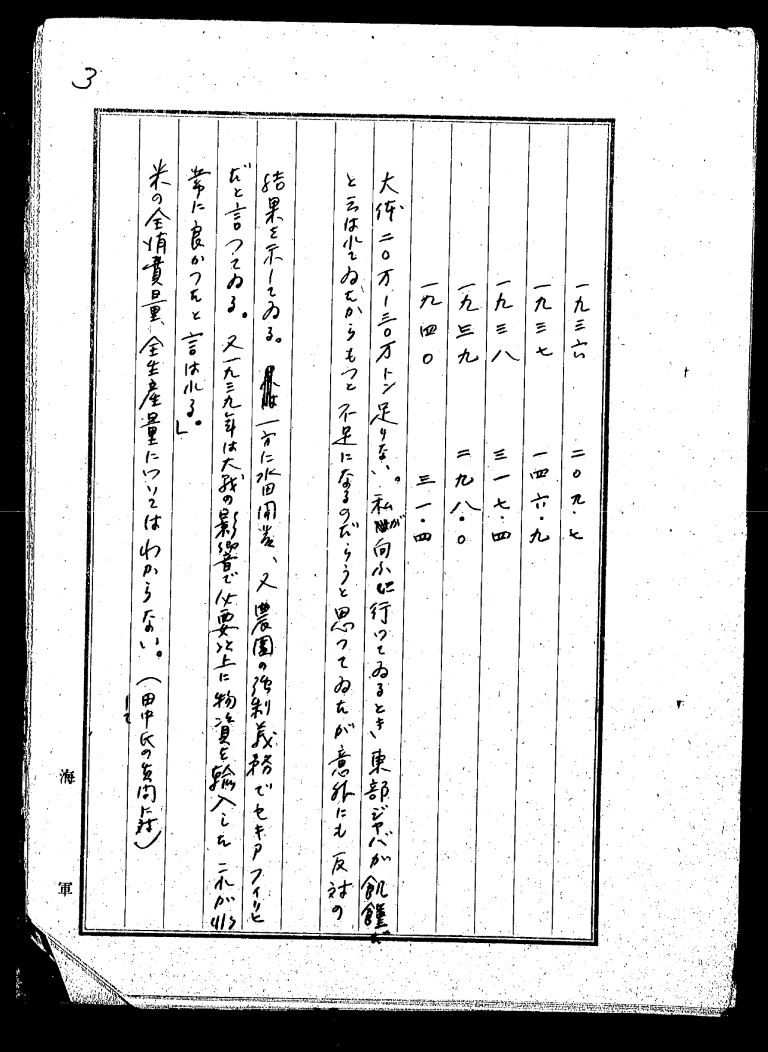 3
一九三六 二〇九・七
一九三七 一四六・九
一九三八 三一七・四
一九三九 二九八・〇
一九四〇 三一・四
大体二〇万—三〇万トン足りない。私が向ふに行つてゐるとき東部ジャバが飢饉だ
と云はれてゐたからもつと不足になるのだらうと思つてゐたが意外にも反対の
結果を示してゐる。一方に水田開発、又農園の強制義務で
だと言つてゐる。又一九三九年は大戦の影響で必要以上に物資を輸入したこれが非
常に良かつたと言はれる。」
米の全消費量、全生産量についてはわからない。(田中氏の質問に対して)
海軍